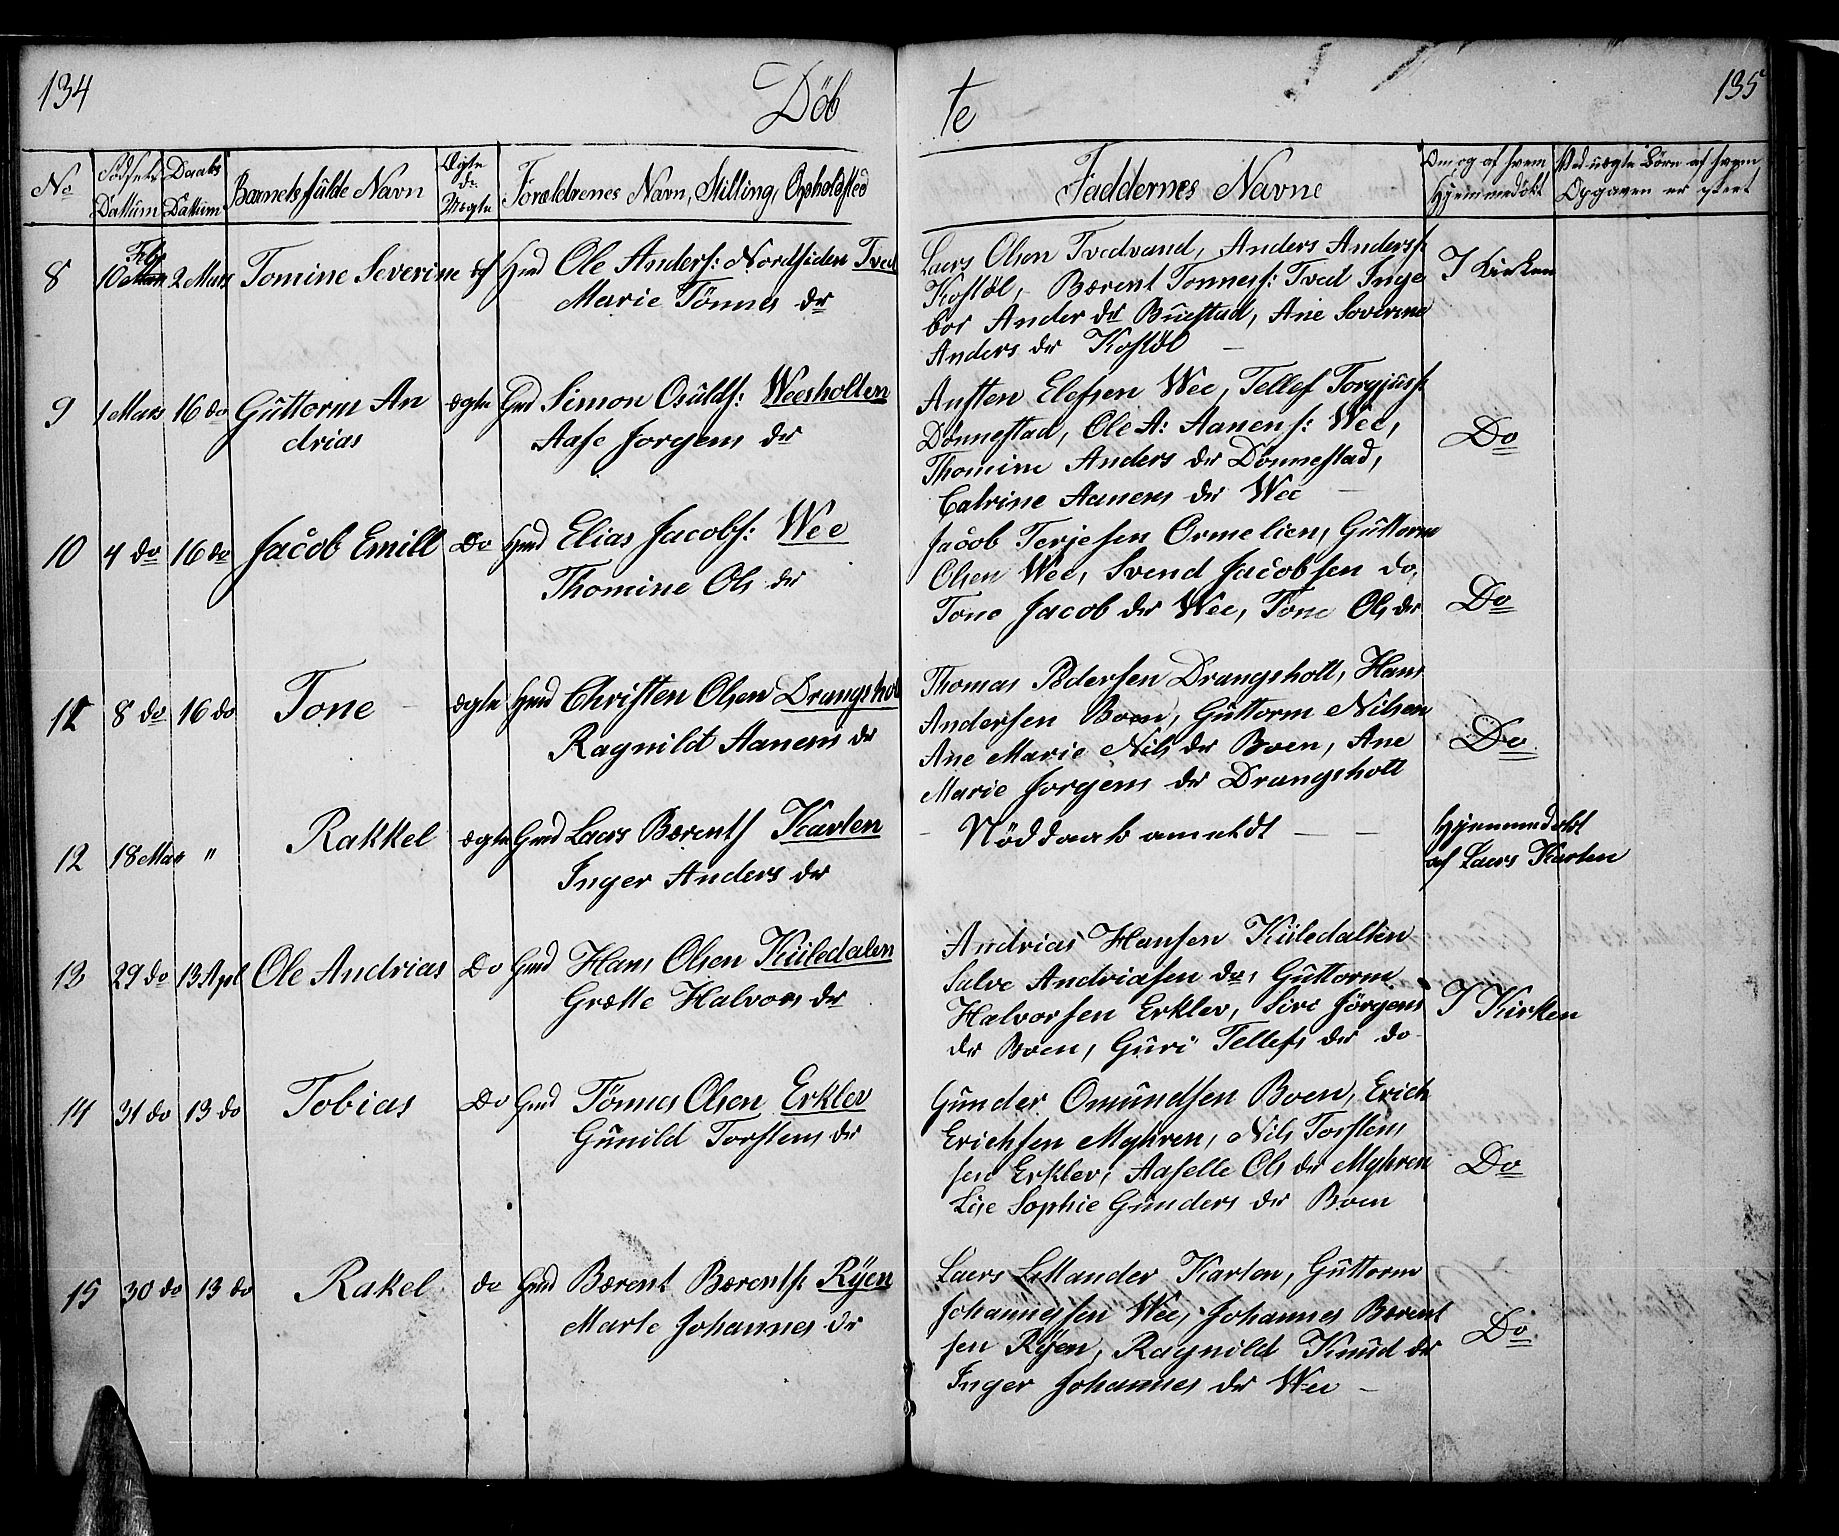 134
Döb
te
135
No
Födsels Dattum
Daabs Dattum
Barnets fulde Navn
Ægte do Uægte
Forældrenes Navn, Stilling, Opholdsted
Faddernes Navne
Om og af hvem Hjemmedøbt
Ved uægte Börn af hvem Opgaven er skeet
8
Feb
10 2 Mars Tomine Severine Ole Anders: Nordsiden Tved
Marie Tönnes dr
Laers Olsen Tvedvand, Anders Anders:
Kostöl, Bærent Tönness: Tved Inge
bor Ander dr Buestad, Ane Severine
Anders dr Kostöl
I Kirken
9 1 Mars 16 do Guttorm An
drias
ægte Gmd Simon Osulds: Weesholten
Aase Jorgens dr
Austen Elefsen Wee, Tellef Torgjus:
Dönnestad, Ole A: Aanens: Wee,
Thomine Anders dr Dönnestad,
Catrine Aanens dr Wee
Do
10 4 do 16 do Jacob Emill Do Hmd Elias Jacobs: Wee
Thomine Ols dr
Jacob Terjesen Ormelien, Guttorm
Olsen Wee, Svend Jacobsen do,
Tone Jacob dr Wee, Tone Ols dr
Do
11 8 do 16 do Tone ægte Hmd Christen Olsen Drangsholt
Ragnild Aanens dr
Thomas Pedersen Drangsholt, Hans
Andersen Boen, Guttorm Nilsen
Ane Marie Nils dr Boen, Ane
Marie Jorgens dr Drangsholt
Do
12 18 Mar " Rakkel ægte Gmd Laers Bærents Karten
Inger Anders dr
- Nöddaab anmeldt - -
Hjemmedøbt
af Laers Karten
13 29 do 13 Apl Ole Andrias Do Gmd Hans Olsen Kuiledalen
Grætte Halvors dr
Andrias Hansen Kuiledalen
Salve Andriasen do, Guttorm
Halvorsen Erklev, Siri Jörgens
dr Boen, Guri Tellefs dr do
I Kirken
14 31 do 13 do Tobias Do Gmd Tönnes Olsen Erklev
Gunild Torstens dr
Gunder Omundsen Boen, Erich
Erichsen Myhren, Nils Torsten
sen Erklev, Aaselle Ols dr Myhren
Lise Sophie Gunders dr Boen
Do
15 30 do 13 do Rakel do Gmd Bærent Bærents: Ryen
Marte Johannes dr
Laers Karten, Guttorm
Johannessen Wee, Johannes Bærent
sen Ryen, Ragnild Knud dr
Inger Johannes dr Wee -
Do